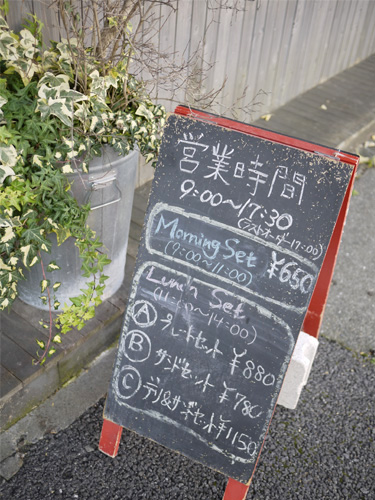 営業時間
9:00〜17:30
(ラストオーダー17:00)
Morning Set
(9:00〜11:00) ¥650
Lunch Set
(11:00〜14:00)
Ⓐ プレートセット ¥880
Ⓑ サンドセット ¥780
Ⓒ デリ&サンドセット ¥1150